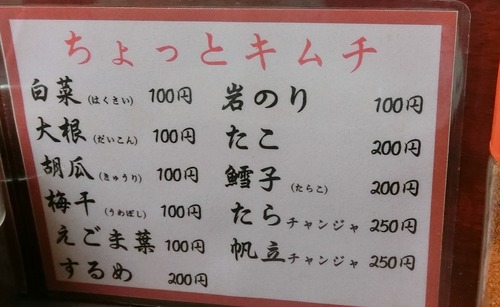 ちょっとキムチ
白菜(はくさい) 100円
大根(だいこん) 100円
胡瓜(きゅうり) 100円
梅干(うめぼし) 100円
えごま葉 100円
するめ 200円
岩のり 100円
たこ 200円
鱈子(たらこ) 200円
たらチャンジャ 250円
帆立チャンジャ 250円